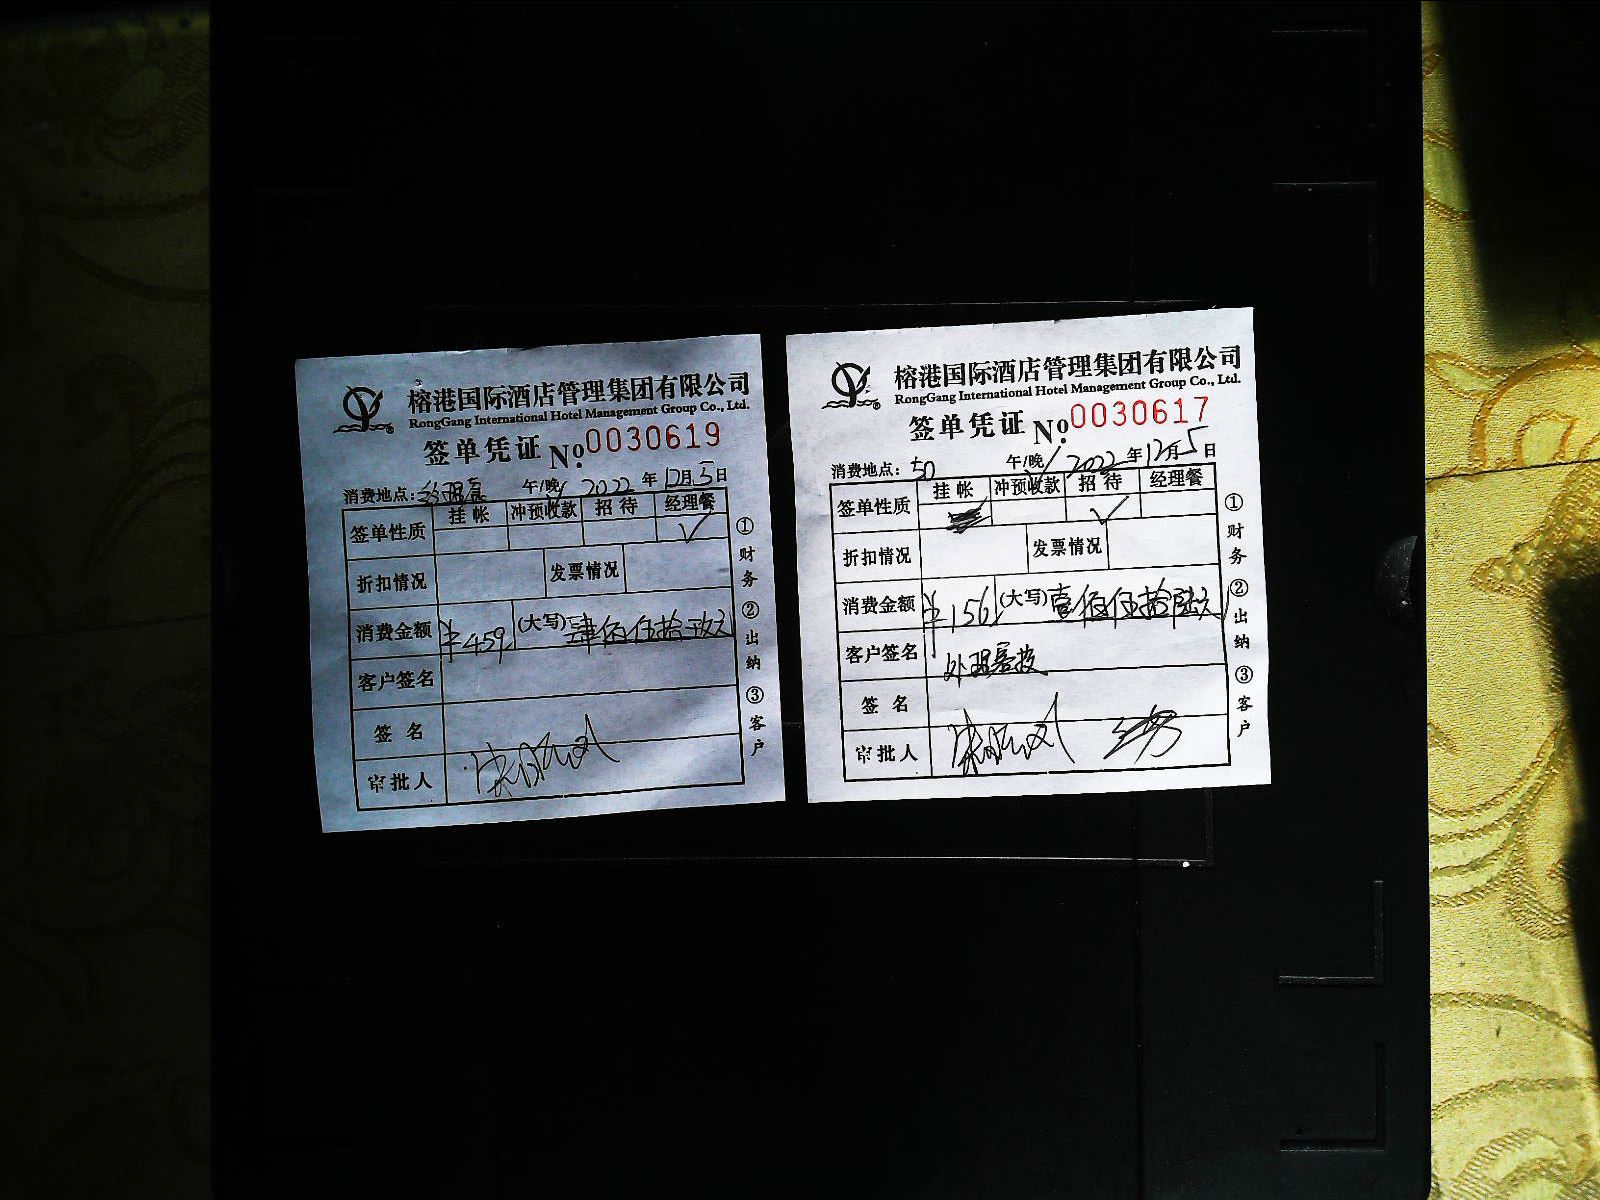 榕港国际酒店管理集团有限公司
RongGang International Hotel Management Group Co., Ltd.
签单凭证 No.0030619
消费地点: 午/晚 2022年12月5日
签单性质 挂帐 冲预收款 招待 经理餐
√
折扣情况 发票情况
消费金额 ¥459 (大写)肆佰伍拾玖元
客户签名
签名
审批人
①财务 ②出纳 ③客户
榕港国际酒店管理集团有限公司
RongGang International Hotel Management Group Co., Ltd.
签单凭证 No.0030617
消费地点: 50 午/晚 2022年12月5日
签单性质 挂帐 冲预收款 招待 经理餐
√
折扣情况 发票情况
消费金额 ¥156 (大写)壹佰伍拾陆元
客户签名
签名
审批人
①财务 ②出纳 ③客户